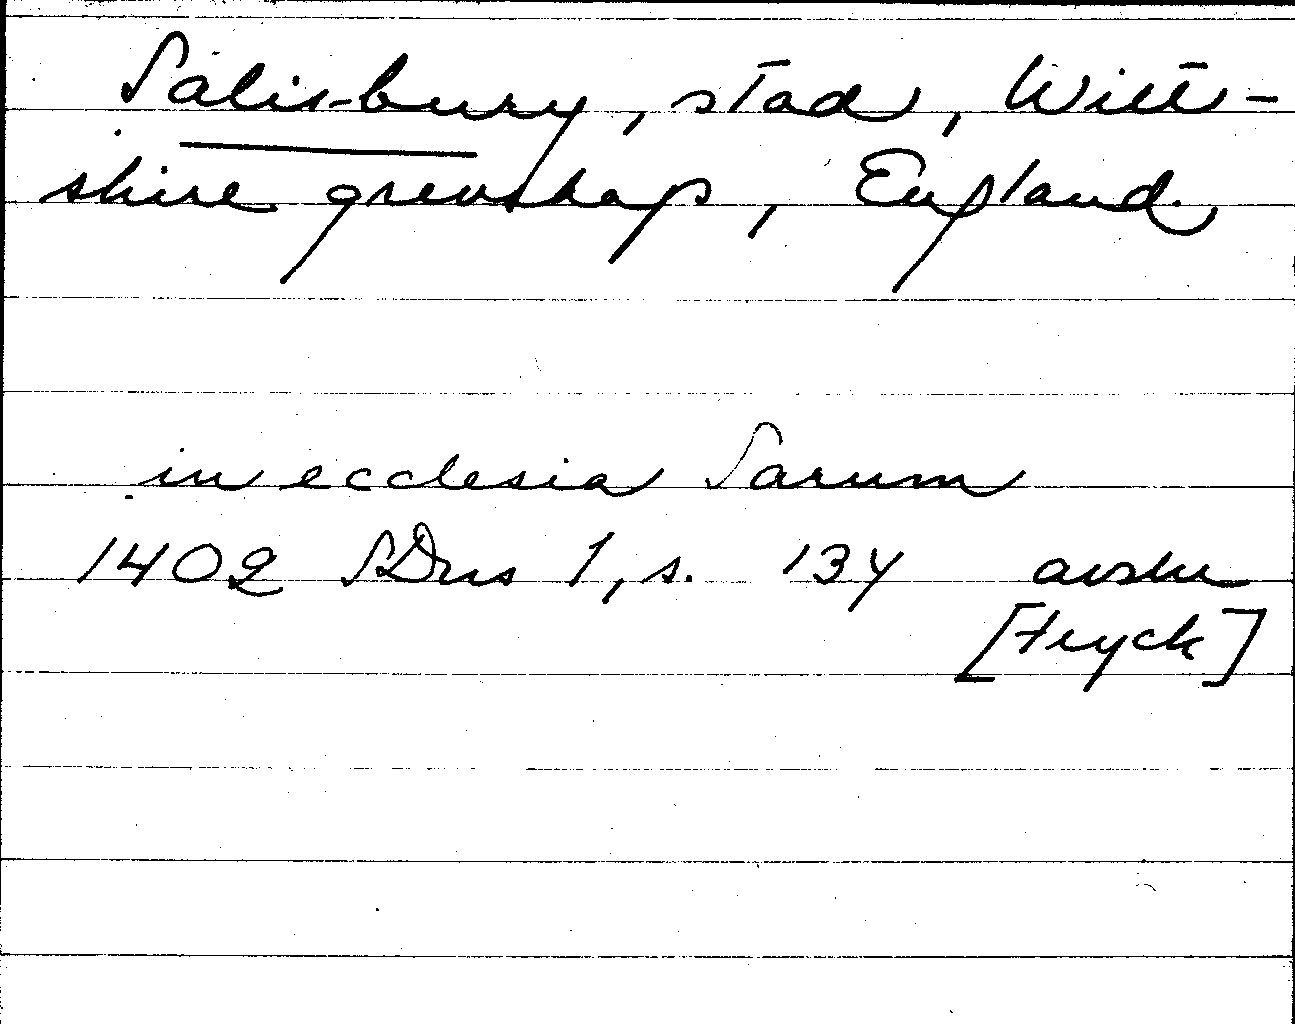 Salisbury, stad, Wilt-
shire grevskap, England.
in ecclesia Sarum
1402 SDns 1, s. 134 avskr
[tryck]